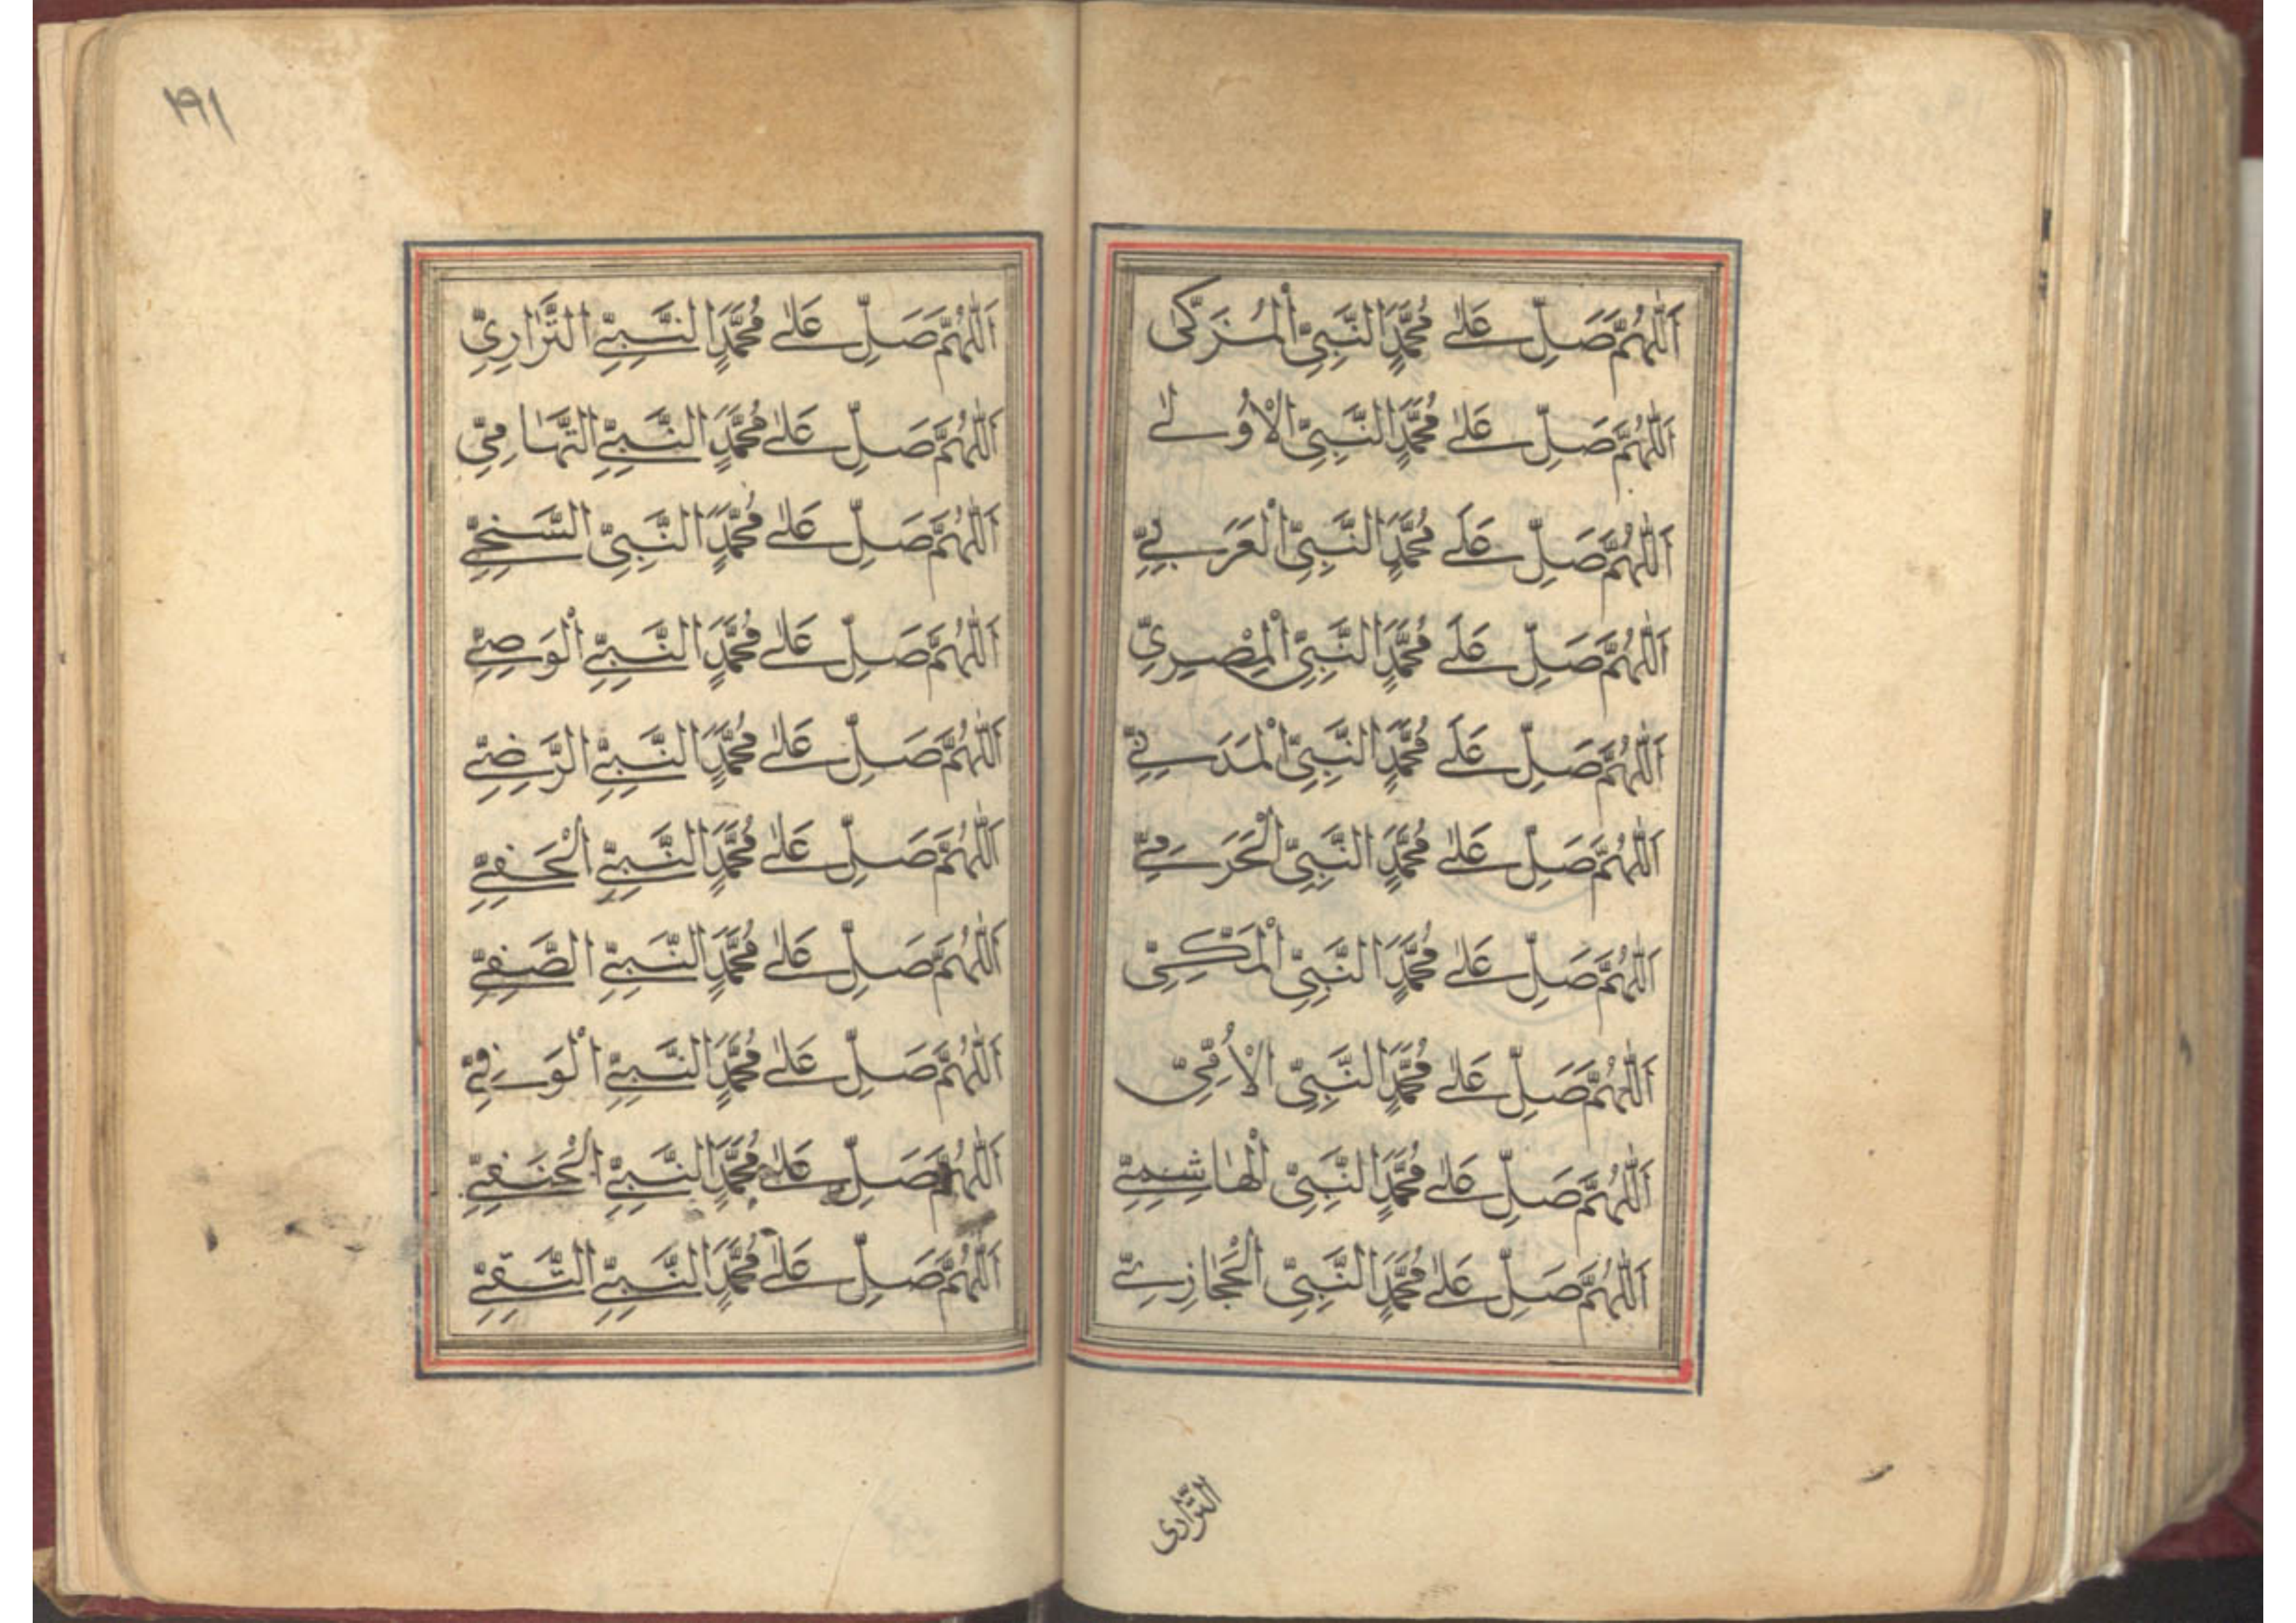 اَللّٰهُمَّ صَلِّ عَلٰى مُحَمَّدٍ النَّبِيِّ الْمُزَكّٰى
اَللّٰهُمَّ صَلِّ عَلٰى مُحَمَّدٍ النَّبِيِّ الْاُولٰى
اَللّٰهُمَّ صَلِّ عَلَى مُحَمَّدٍ النَّبِيِّ الْعَرَبِيِّ
اَللّٰهُمَّ صَلِّ عَلَى مُحَمَّدٍ النَّبِيِّ الْمِصْرِيِّ
اَللّٰهُمَّ صَلِّ عَلَى مُحَمَّدٍ النَّبِيِّ الْمَدَنِيِّ
اَللّٰهُمَّ صَلِّ عَلٰى مُحَمَّدٍ النَّبِيِّ الْحَرَمِيِّ
اَللّٰهُمَّ صَلِّ عَلٰى مُحَمَّدٍ النَّبِيِّ الْمَكِّيِّ
اَللّٰهُمَّ صَلِّ عَلٰى مُحَمَّدٍ النَّبِيِّ الْاُمِّيِّ
اَللّٰهُمَّ صَلِّ عَلٰى مُحَمَّدٍ النَّبِيِّ الْهَاشِمِيِّ
اَللّٰهُمَّ صَلِّ عَلٰى مُحَمَّدٍ النَّبِيِّ الْحِجَازِيِّ
١٩١
اَللّٰهُمَّ صَلِّ عَلٰى مُحَمَّدٍ النَّبِيِّ
اَللّٰهُمَّ صَلِّ عَلٰى مُحَمَّدٍ النَّبِيِّ التِّهَامِيِّ
اَللّٰهُمَّ صَلِّ عَلٰى مُحَمَّدٍ النَّبِيِّ السَّخِيِّ
اَللّٰهُمَّ صَلِّ عَلٰى مُحَمَّدٍ النَّبِيِّ الْوَصِيِّ
اَللّٰهُمَّ صَلِّ عَلٰى مُحَمَّدٍ النَّبِيِّ الرَّضِيِّ
اَللّٰهُمَّ صَلِّ عَلٰى مُحَمَّدٍ النَّبِيِّ الْحَفِيِّ
اَللّٰهُمَّ صَلِّ عَلٰى مُحَمَّدٍ النَّبِيِّ الصَّفِيِّ
اَللّٰهُمَّ صَلِّ عَلٰى مُحَمَّدٍ النَّبِيِّ الْوَفِيِّ
اَللّٰهُمَّ صَلِّ عَلٰى مُحَمَّدٍ النَّبِيِّ الْحَنَفِيِّ
اَللّٰهُمَّ صَلِّ عَلٰى مُحَمَّدٍ النَّبِيِّ التَّقِيِّ